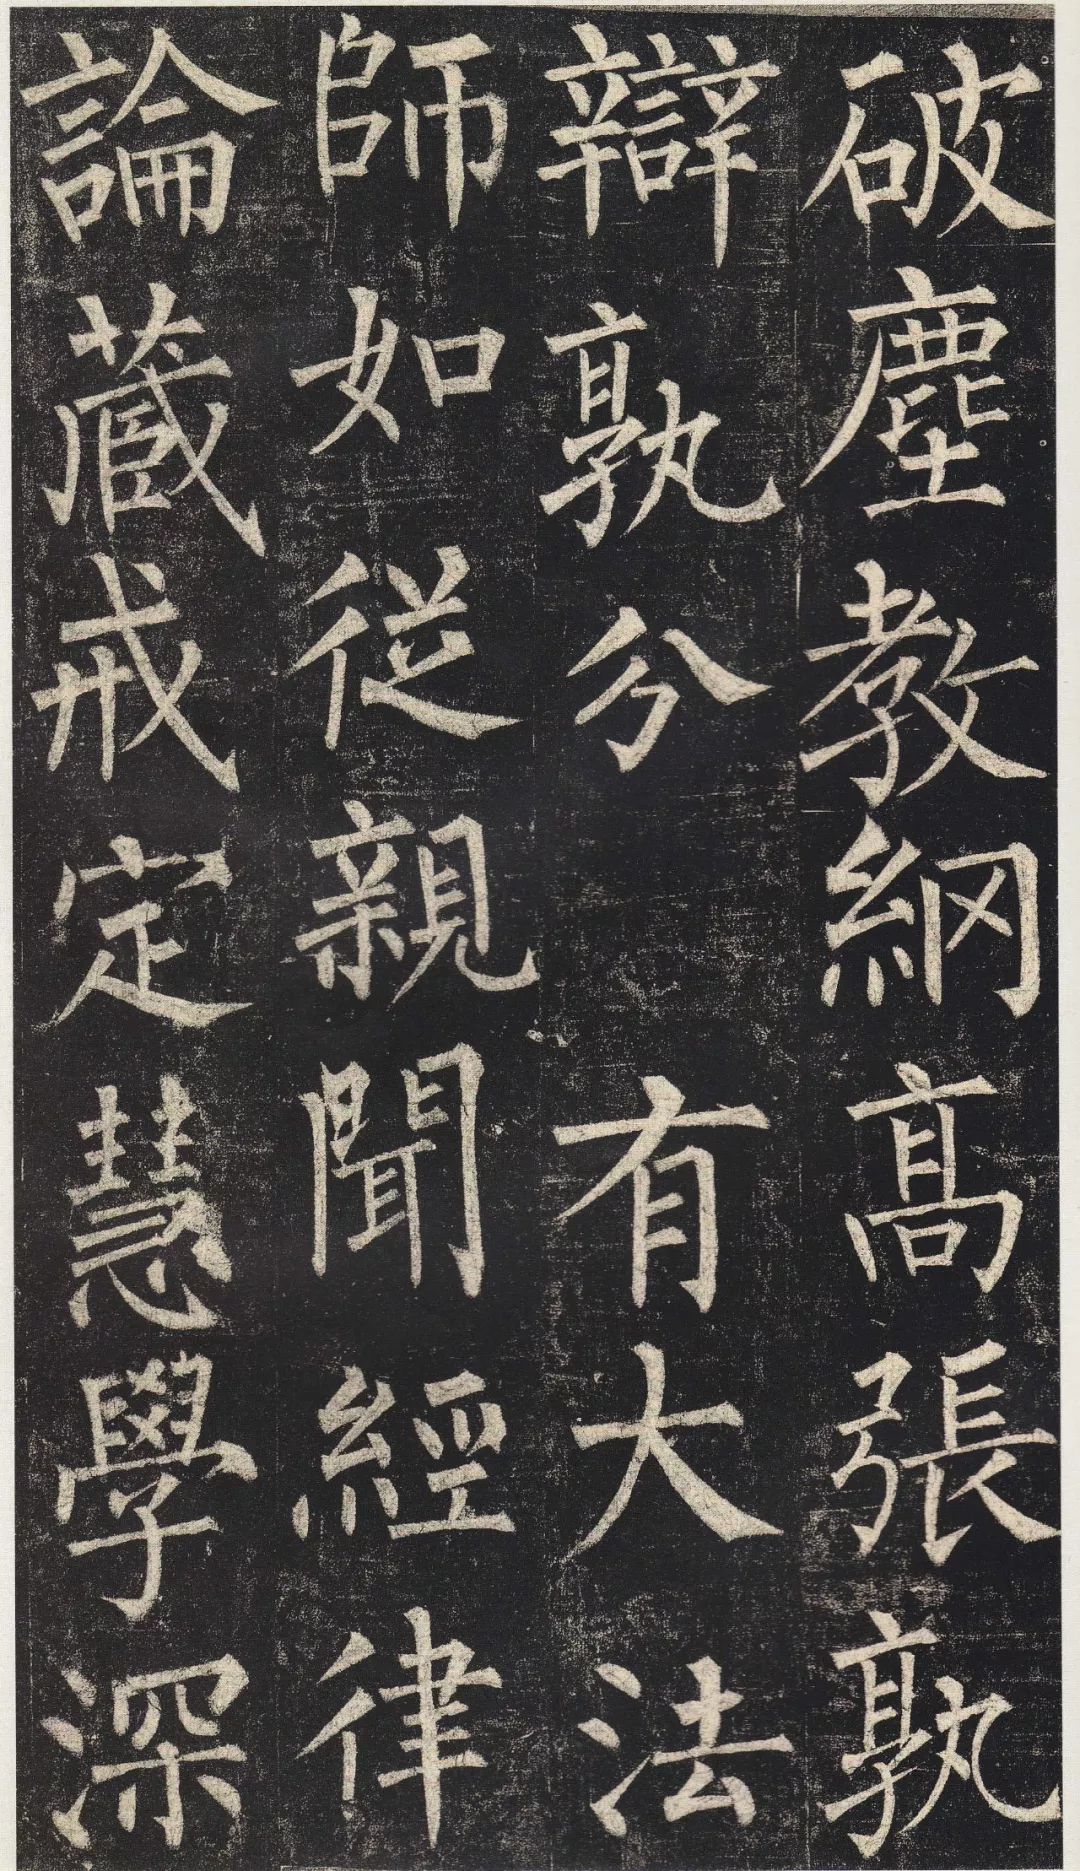 破塵教網高張孰
辯孰分有大法
師如從親聞經律
論藏戒定慧學深